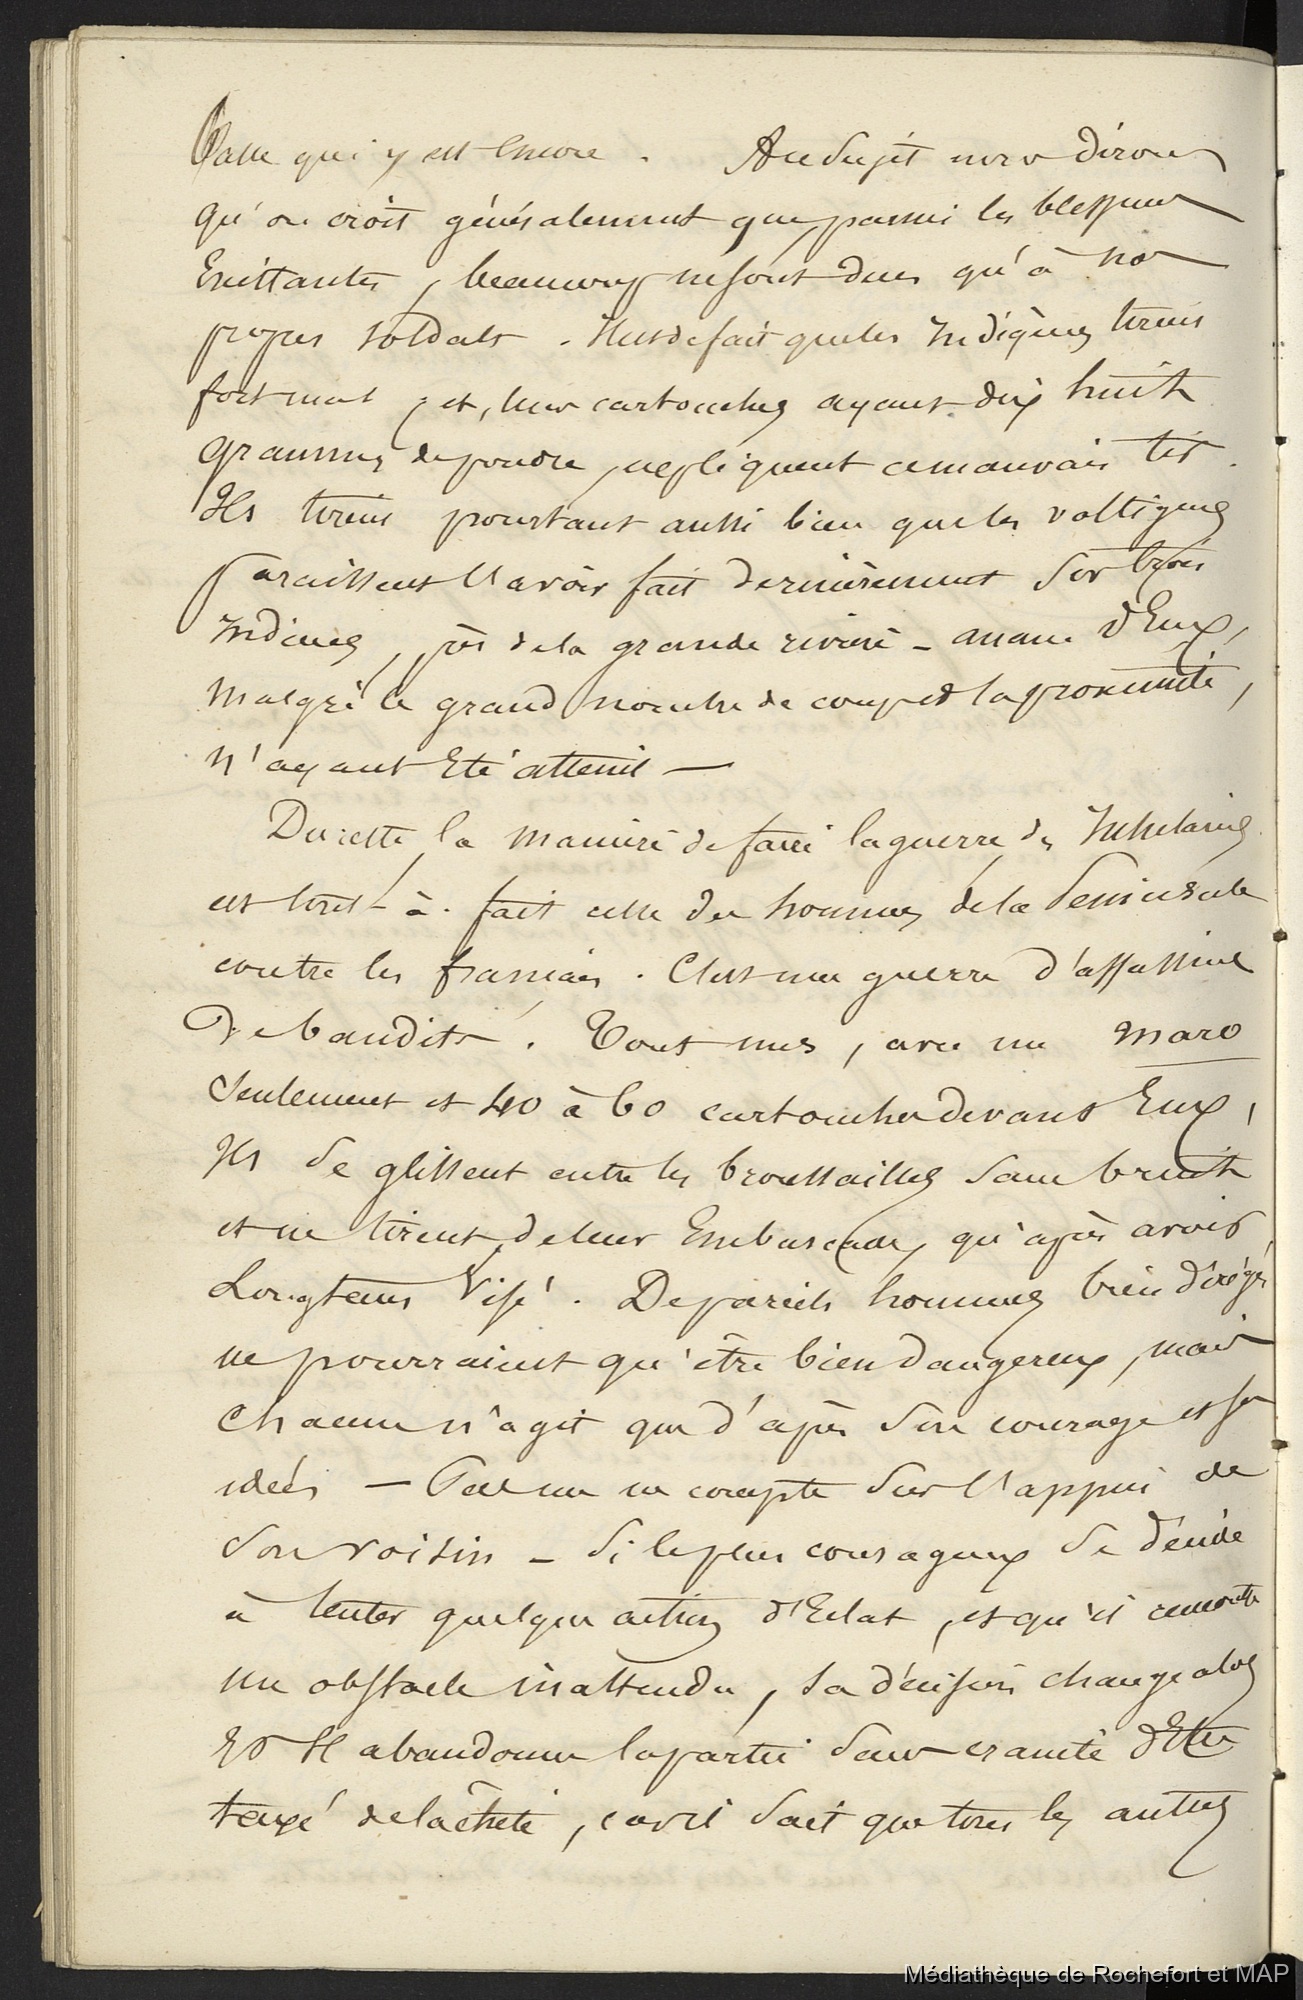 balle qui y est encore. Au sujet nous dirons
qu'on croit généralement que, parmi les blessures
Existantes, beaucoup ne sont dues qu'à nos
propres soldats. Il est de fait que les Indigènes tirent
fort mal, et, leurs cartouches ayant dix huit
grammes de poudre, expliquent ce mauvais tir.
Ils tirent pourtant aussi bien que les voltigeurs
paraissent l'avoir fait dernièrement sur trois
Indiens, près de la grande rivière - aucun d'Eux,
malgré le grand nombre de coups et la proximité,
n'ayant Eté atteint —
Du reste la manière de faire la guerre des Insulaires
est tout-à-fait celle des hommes de la Peninsule
contre les français. C'est une guerre d'assassins
De bandits. Tout nus, avec un maro
Seulement et 40 à 60 cartouches devant Eux,
Ils se glissent entre les broussailles sans bruit
et ne tirent de leur Embuscade, qu'après avoir
Longtems visé. De pareils hommes bien dirigés
ne pourraient qu'être bien dangereux, mais
chacun n'agit que d'après son courage et ses
idées — Pas un ne compte sur l'appui de
son voisin - Si le plus courageux se décide
à tenter quelque action d'Eclat, et qu'il rencontre
un obstacle inattendu, sa décision change alors
Et Il abandonne la partie sans crainte d'Etre
taxé de lâcheté, car il sait que tous les autres
Médiathèque de Rochefort et MAP